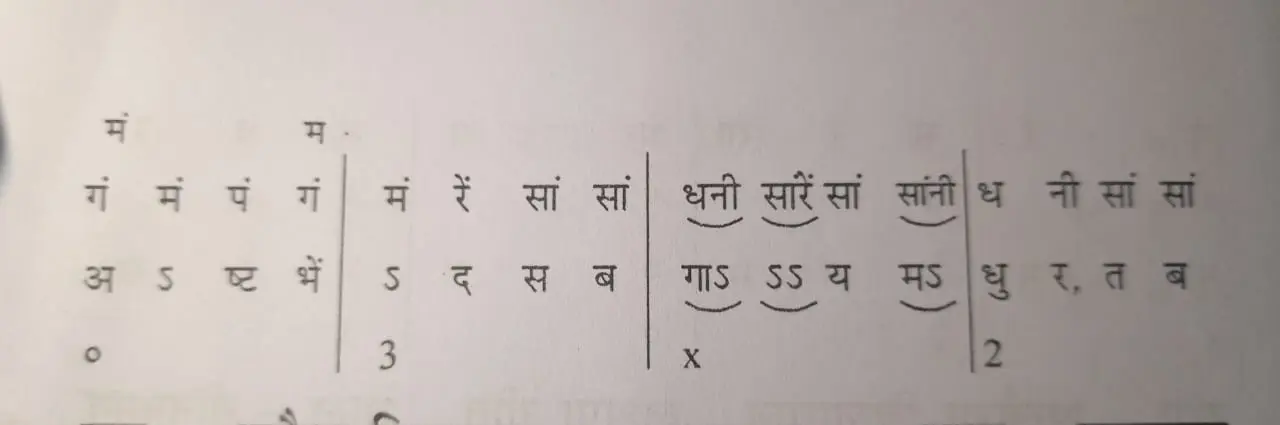 मं म
गं मं पं गं मं रें सां सां धनी सारें सां सांनी ध नी सां सां
अ ऽ ष्ट भें ऽ द स ब गाऽ ऽऽ य मऽ धु र, त ब
० 3 x 2